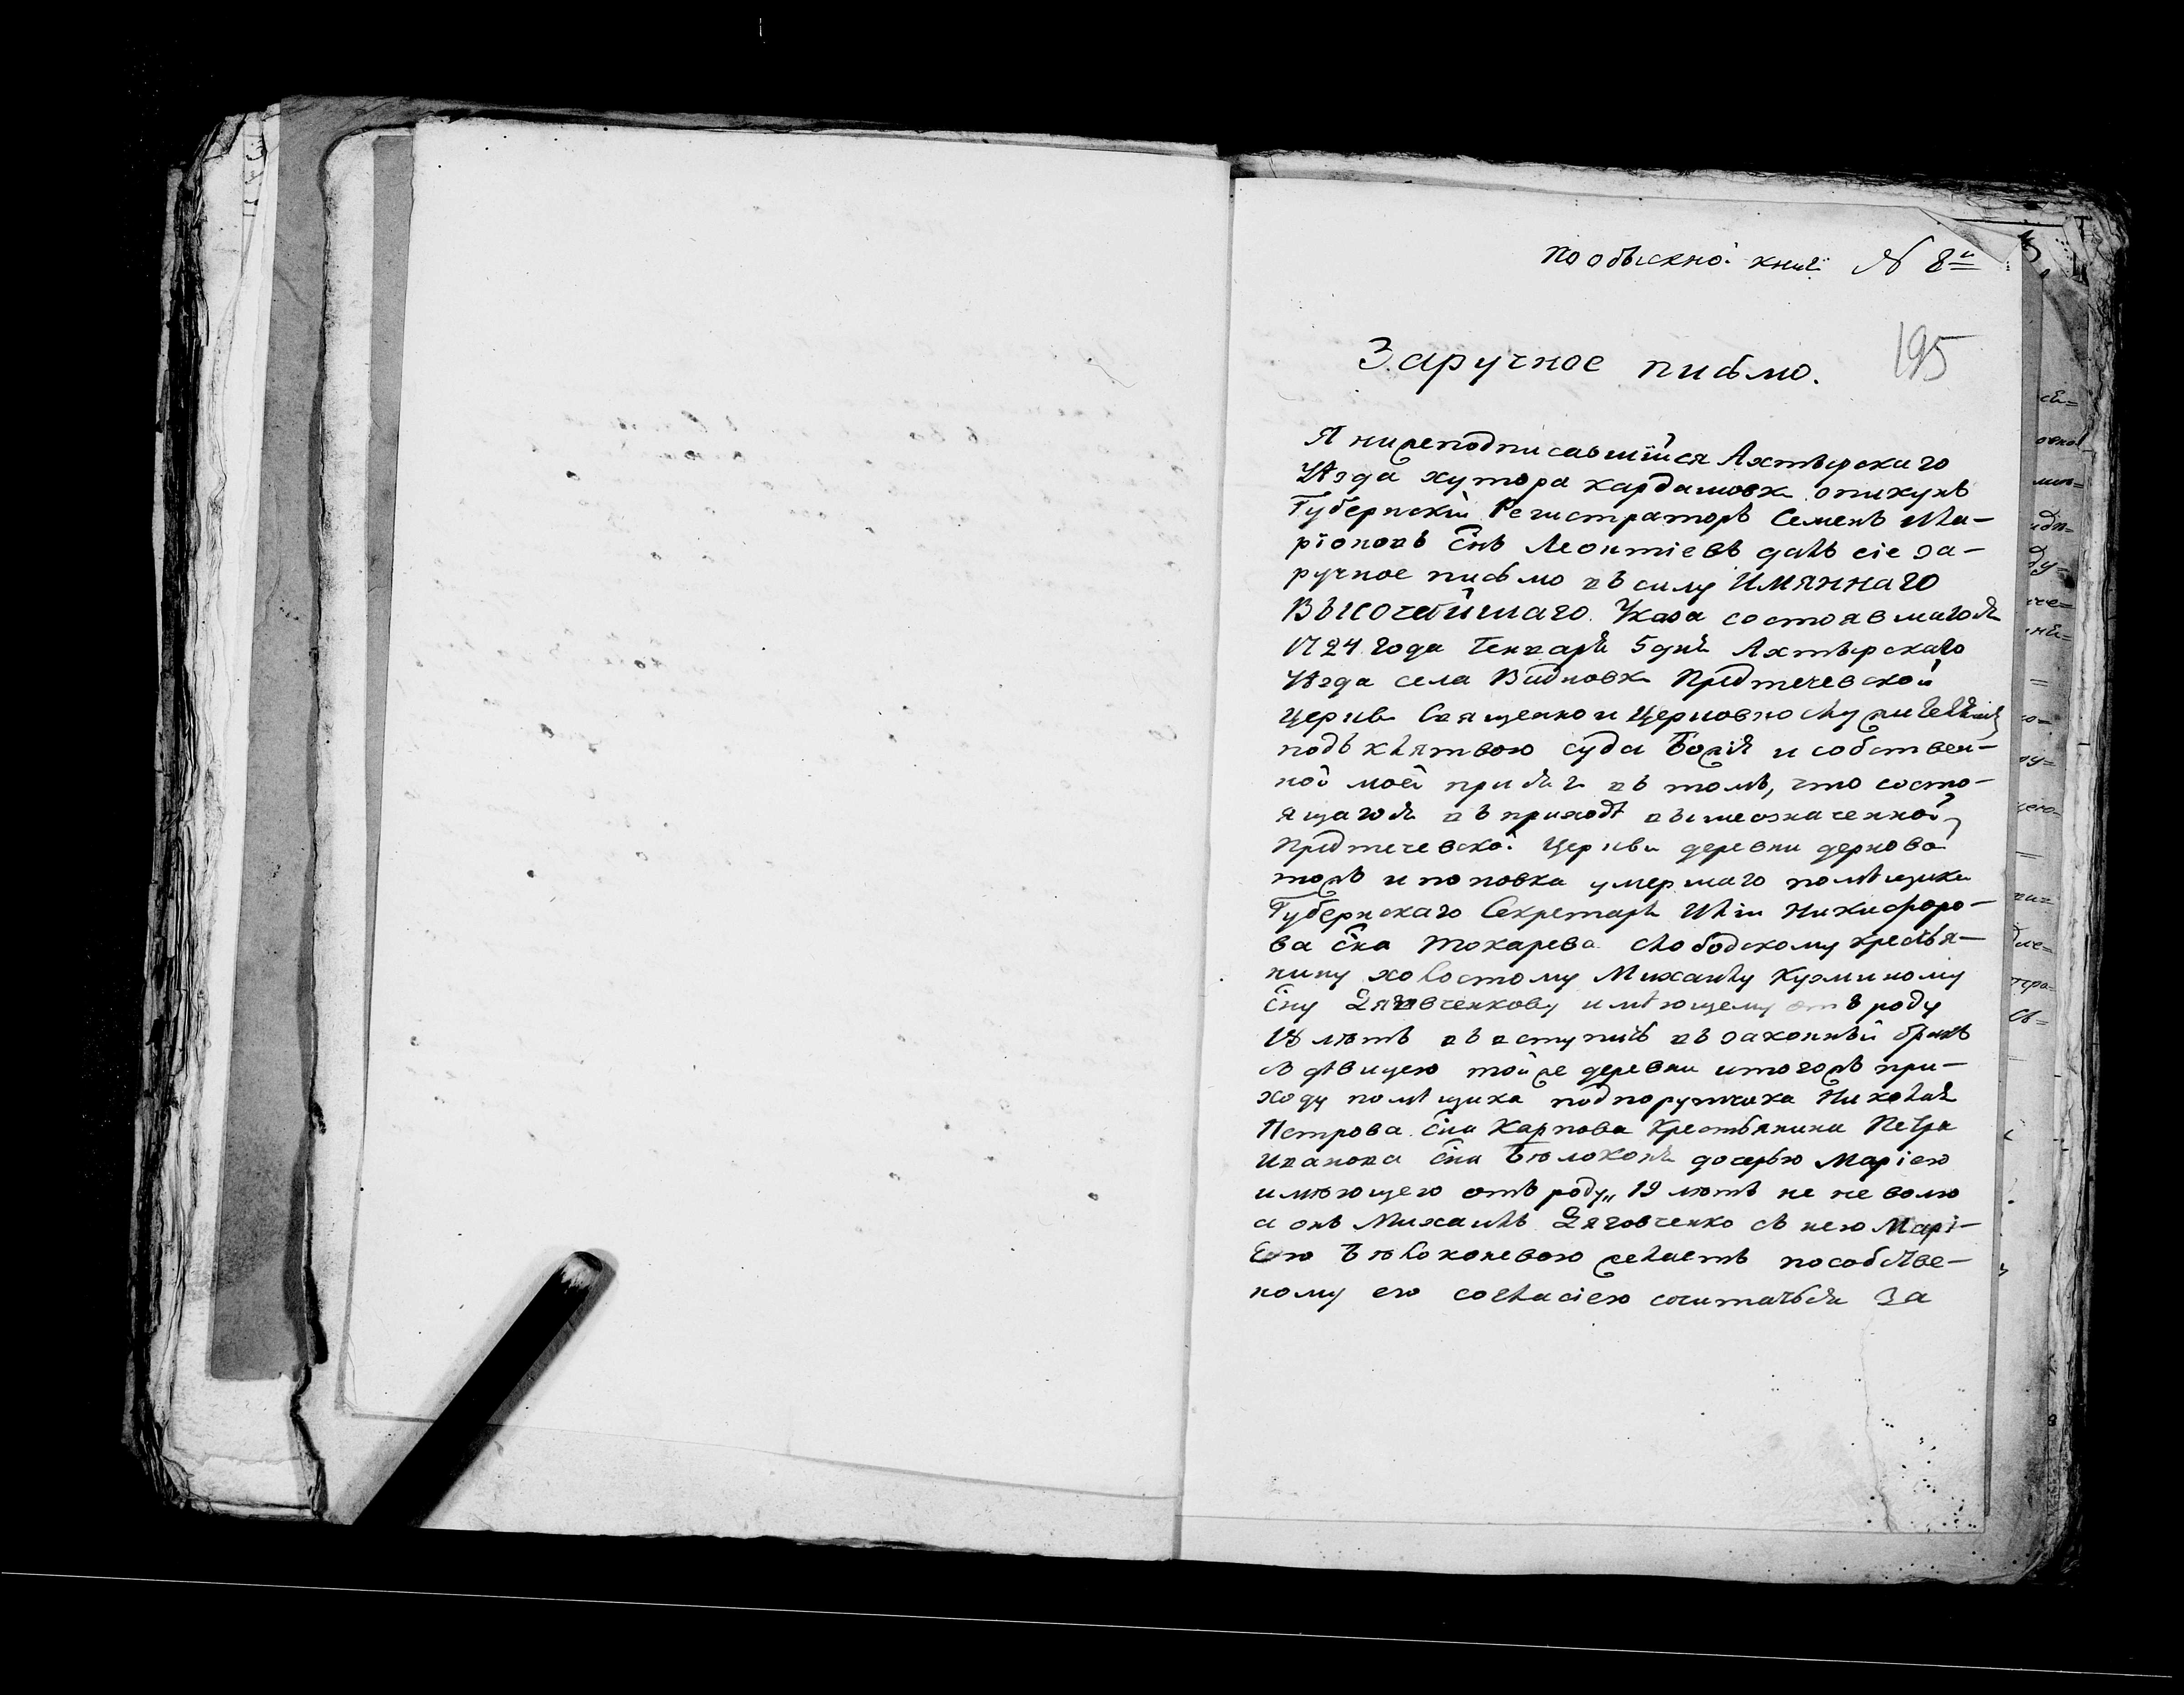 по обыскной книги № 8й
195
Заручное письмо.
Я нижеподписавшійся Ахтырскаго
Уѣзда хутора кардашовки опикунъ
Губернскій Регистраторъ Семенъ Ила-
ріоновъ Снъ Леонтіевъ далъ сіе за-
ручное письмо въ силу Имяннаго
Высочайшаго Указа состоявшагося
1724 года Генваря 5 дня Ахтырскаго
Уѣзда села Видновки Предтечевской
Церкви Священно и Церковнослужителямъ
подъ клятвою суда Божія и собствен-
ной моей присяги въ томъ, что состо-
ящагося въ приходѣ вышеозначенной
Предтечевской Церкви деревни дернова
тожъ и поповка умершаго помѣщика
Губернскаго Секретаря Иліи Никифоро-
ва Сна Токарева слободскому крестья-
нину холостому Михаилу Кузминому
Сну Дяговченкову имѣющему отъ роду
18 лютъ въ вступить въ законный бракъ
съ дѣвицею тойже деревни и тогожъ при-
ходу помѣщика подпоручика Николая
Петрова Сна Карпова Крестьянина Петра
Иванова Сна Бюлоконя дочерью Маріею
имюющею отъ роду„ 19 лютъ не не волю
а онъ Михаилъ Дяговченко съ нею Марі-
Ею Бюлоконевою желаетъ по собстве-
ному ею согласіею сочитаться За